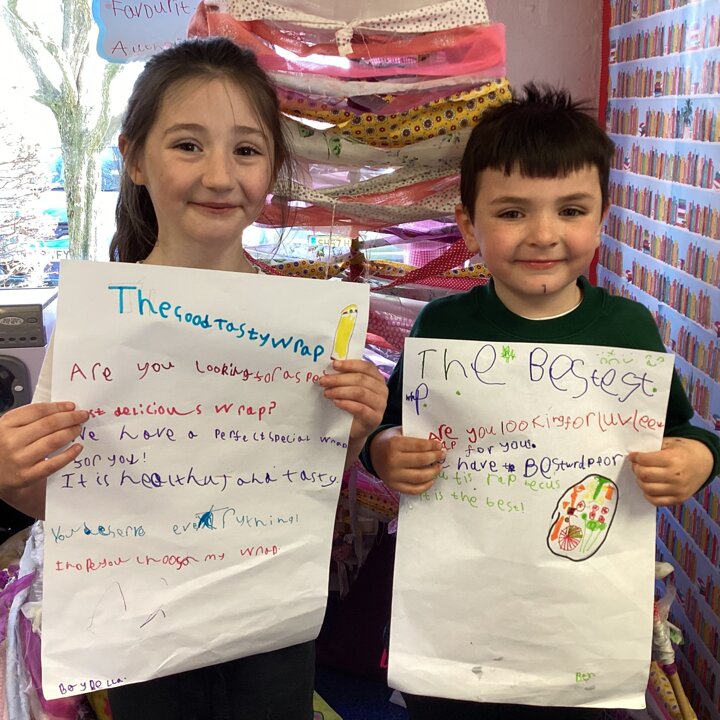 Favourite
The Good Tasty Wrap
Are you Looking for a spe
delicious wrap?
We have a perfect special wrap
for you!
It is healthy and tasty.
You deserve everything!
I hope you choose my wrap.
By Della.
The Bestest
wrap.
Are you looking for luvlee
rap for you.
have Best for
it is the best!
Ben